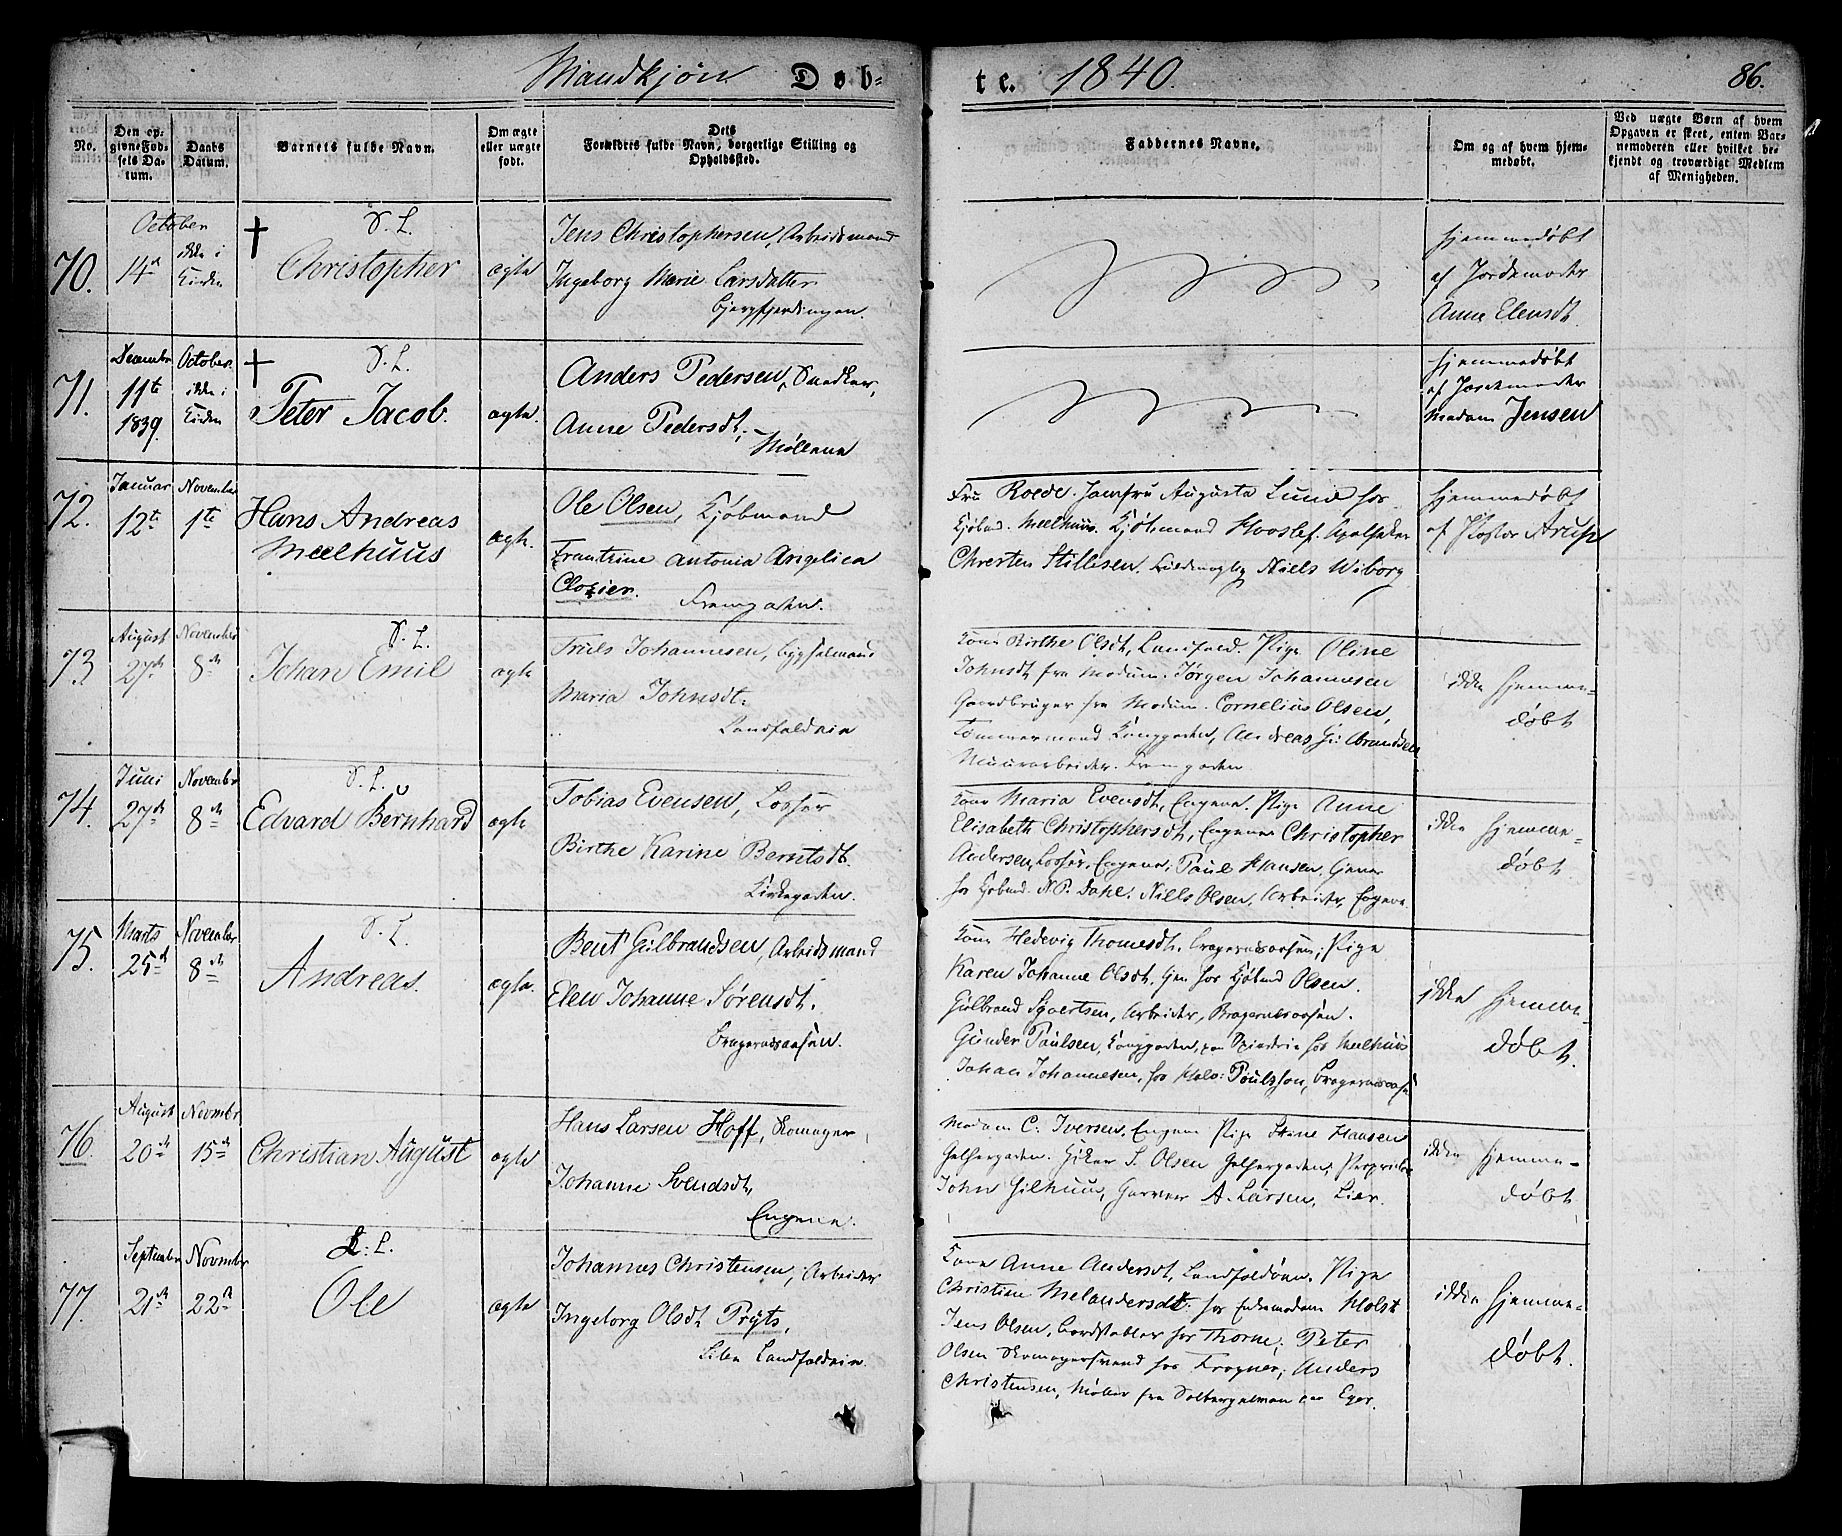 Mandkjøn Døb-
te. 1840. 86.
No.
Den op-
givne Fød-
sels Da-
tum.
Daabs
Datum.
Barnets fulde Navn.
Om ægte
eller uægte
født.
Dets
Forældres fulde Navn, borgerlige Stilling og
Opholdssted.
Faddernes Navne.
Om og af hvem hjem-
medøbt.
Ved uægte Børn af hvem
Opgaven er skeet, enten Bar-
nemoderen eller hvilket be-
kjendt og troværdigt Medlem
af Menigheden.
October
70.
14de
ikke i
Kirken
S. L.
Christopher
ægte
Jens Christophersen, Arbeidsmand
Ingeborg Marie Larsdatter
Bjergfjerdingen.
hjemmedøbt
af Jordemoder
Anne Elensdt.
71.
Decembr
11te
1839.
October.
ikke i
Kirken
S. L.
Peter Jacob.
ægte.
Anders Pedersen, Snedker,
Anne Pedersdt,
Møllene
hjemmedøbt
af Jordemoder
Madam Jensen
72.
Januar
12te
November
1te
Hans Andreas
Meelhuus
ægte.
Ole Olsen, Kjøbmand
Frantzine Antonia Angelica
Clozier.
Fremgaden.
Fru Roede. Jomfru Augusta Lund hos
Kjøbmd. Meelhuus. Kjøbmand Hooslef. Apotheker
Chresten Stillesen. Fuldmægtig Niels Wiborg
hjemmedøbt
af Pastor Arup
73
August
27de
November
8de
S. L.
Johan Emil
ægte
Truls Johannesen, Bygselmand
Maria Johnsdt.
Landfaldøin
Kone Birthe Olsdt, Landfald. Pige Oline
Johnsdt fra Modum. Jørgen Johannesen
Gaardbruger fra Modum. Cornelius Olsen,
Tømmermand Konggaden, Andreas Gulbrandsen
Muurarbeider. Fremgaden
ikke hjemme-
døbt
74.
Juni
27de
Novembr
8de
S. L.
Edvard Bernhard
ægte
Tobias Evensen, Losser
Birthe Karine Berntsdt.
Kirkegaden.
Kone Maria Evensdt, Engene. Pige Anne
Elisabeth Christophersdt, Engene Christopher
Andersen, Losser, Engene; Paul Hansen, Tjener
hos Kjøbmd. N. P. Dahl. Niels Olsen, Arbeider, Engene.
ikke hjemme-
døbt.
75.
Marts
25de
November
8de
S. L.
Andreas.
ægte.
Bent Gulbrandsen, Arbeidsmand
Elen Johanne Sørensdt.
Bragernæsaasen.
Kone Hedevig Thomesdt. Bragernæsaasen; Pige
Karen Johanne Olsdt. tjen hos Kjøbmd Olsen.
Gulbrand Syvertsen, Arbeider, Bragernæsaasen.
Gunder Paulsen, Konggaden, hos Meelhuus
Johan Johannesen, hos Poulsson, Bragernæsaasen
ikke hjemme-
døbt.
76.
August
20de
Novmbr
15de
Christian August
ægte
Hans Larsen Hoff, Skomager
Johanne Svendsdt,
Engene.
Madam C. Iversen, Engene Pige Stine Hansen
S. Olsen
John Gilhuus, Garver A. Larsen, Lier.
ikke hjemme-
døbt
77.
Septembr
21de
Novmbr
22de
S. L.
Ole
ægte
Johannes Christensen, Arbeider
Ingeborg Olsdt Pryts,
Lilen Landfaldøin.
Kone Anne Andersdt, Landfaldøen. Pige
Christine Melandersdt. hos Enkemadam Holst
Jens Olsen, Bordstabler hos Thorne; Peter
Olsen Skomagersvend hos Frogner; Anders
Christensen, Møller fra Solbergelven paa Eger.
ikke hjemme-
døbt.